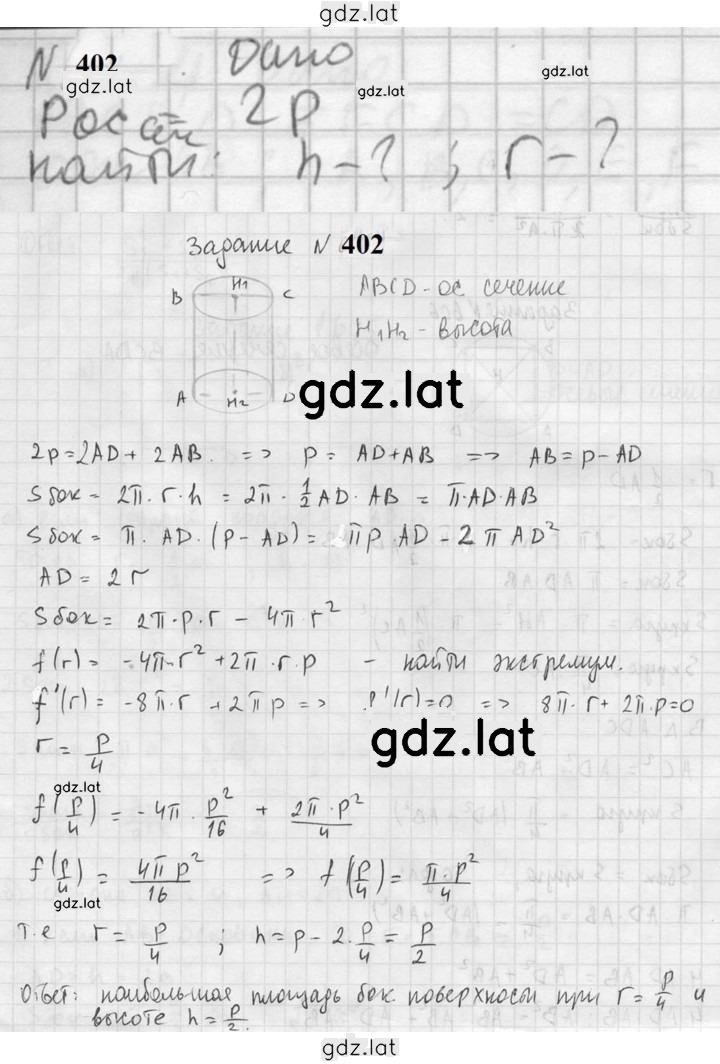 gdz.lat
N 402 Дано
gdz.lat gdz.lat
Pос сеч 2p gdz.lat
найти: h-? ; r-?
Задание N 402
B H1 C ABCD - ос. сечение
H1H2 - высота
A H2 D gdz.lat
2p=2AD+ 2AB. => p= AD+AB => AB= p-AD
Sбок= 2π·r·h = 2π·1/2 AD·AB = π·AD·AB
Sбок= π·AD·(p-AD)= πp·AD - 2πAD²
AD= 2r
Sбок= 2π·p·r - 4π·r²
f(r)= -4π·r²+2π·r·p - найти экстремум.
f'(r)= -8π·r+2πp => f'(r)=0 => 8π·r+2π·p=0
r= p/4 gdz.lat
gdz.lat
f(p/4)= -4π·p²/16 + 2π·p²/4
f(p/4)= 4πp²/16 => f(p/4)= π·p²/4
gdz.lat
т.е r= p/4 ; h=p-2·p/4= p/2
Ответ: наибольшая площадь бок. поверхносы при r= p/4 и
высоте h= p/2.
gdz.lat